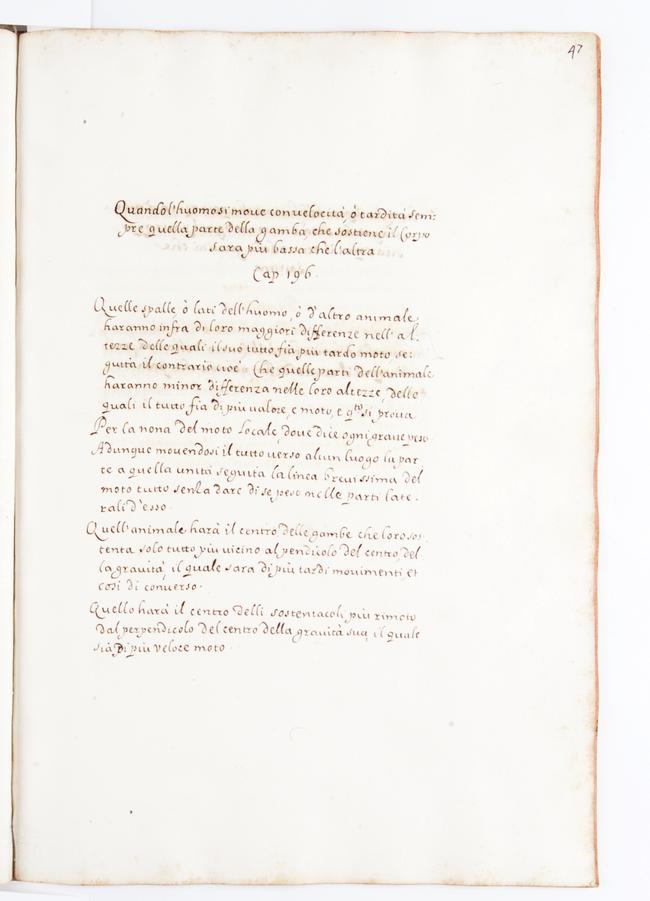 47
Quando l'huomo si move con velocità, ò tardità sem:
pre quella parte della gamba, che sostiene il Corpo
sara più bassa che l'altra
Cap 196.
Quelle spalle, ò lati dell'huomo, ò d'altro animale
haranno infra di loro maggiori differenze nell'al.
tezze delle quali il suo tutto fia più tardo moto se:
guita il contrario cioè Che quelle parti dell'animale
haranno minor differenza nelle loro altezze, delle
quali il tutto fia di più valore, e moto, e q.to si prova
Per la nona del moto Locale, dove dice ogni grave peso
Adunque movendosi il tutto verso alcun luogo la par
te a quella unita seguita la linea brevissima del
moto tutto senza dare di se peso nelle parti late.
rali d'esso.
Quell'animale harà il centro delle gambe che loro sos.
tenta solo tutto più vicino al pendicolo del centro del
la gravità, il quale sara di più tardi movimenti, et
così di converso.
Quello harà il centro delli sostentacoli più rimoto
dal perpendicolo del centro della gravità sua, il quale
sia di più veloce moto.